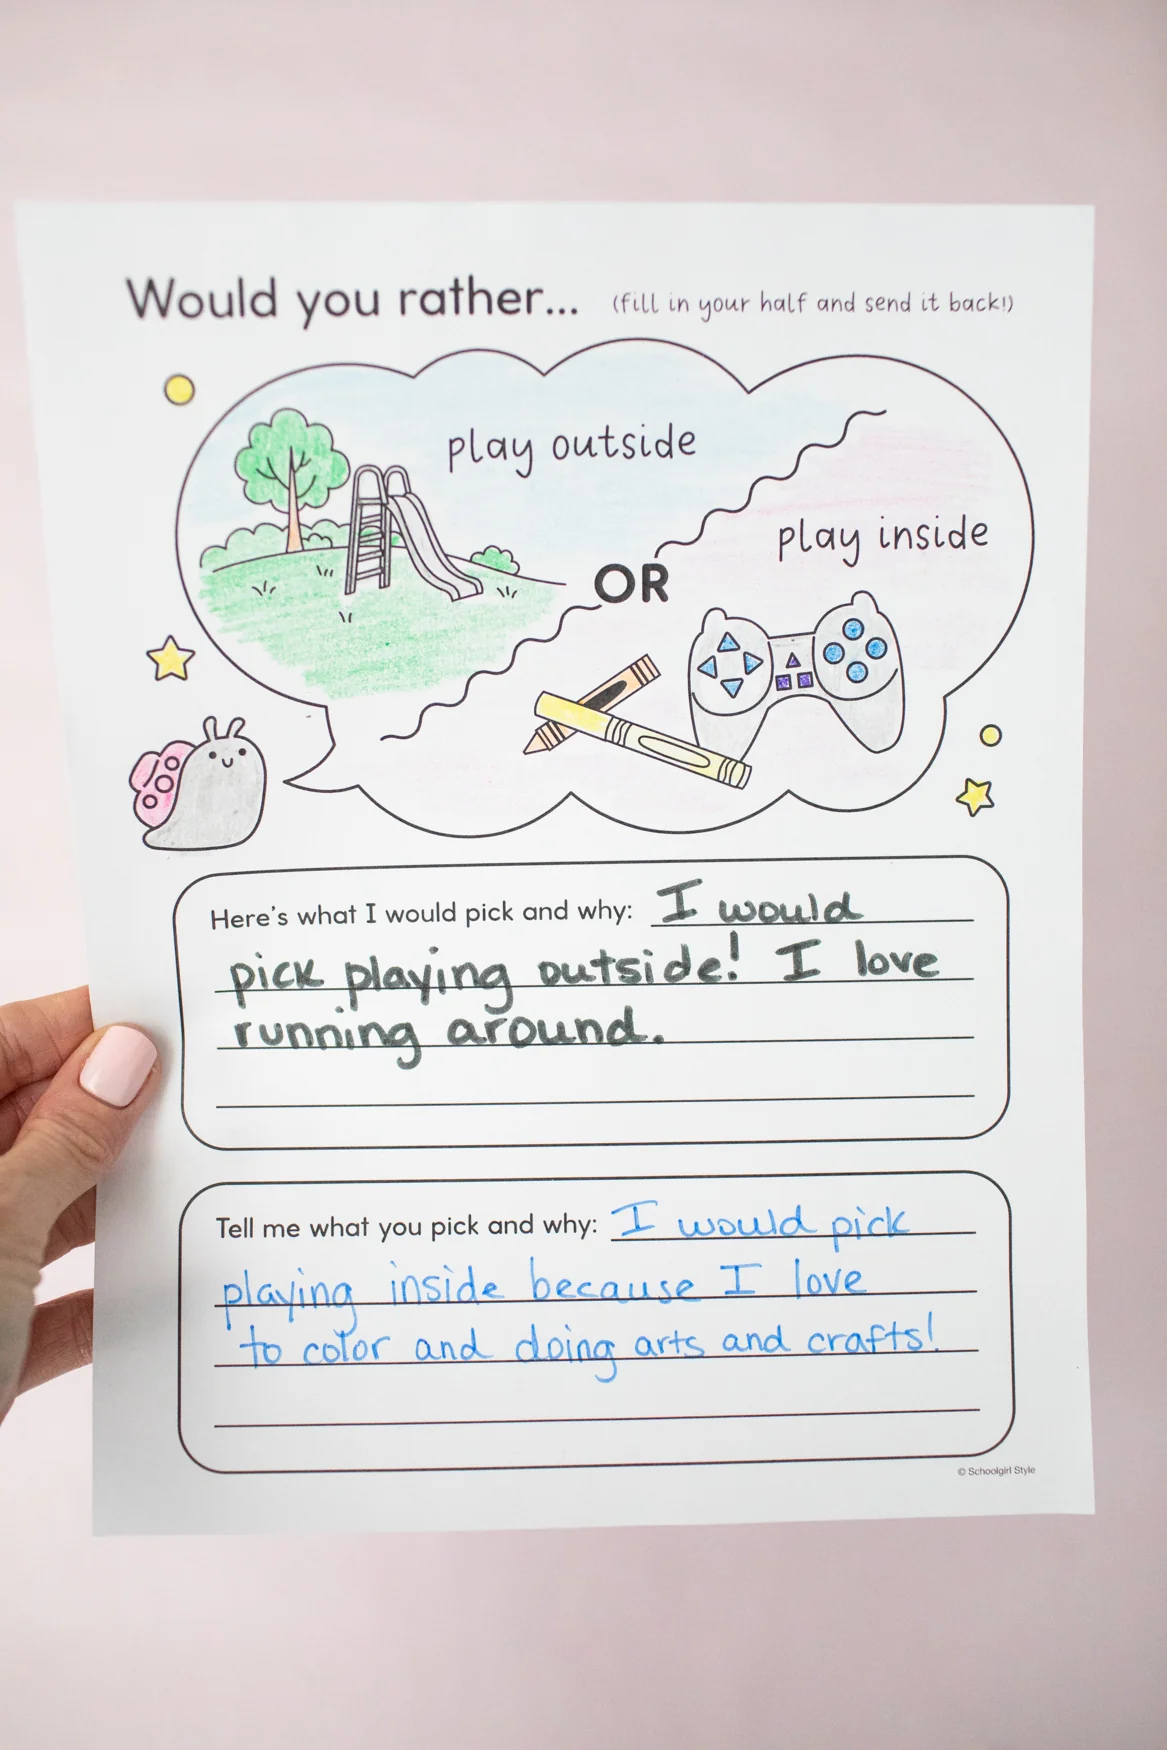 Would you rather... (fill in your half and send it back!)
play outside
OR
play inside
Here's what I would pick and why: I would
pick playing outside! I love
running around.
Tell me what you pick and why: I would pick
playing inside because I love
to color and doing arts and crafts!
© Schoolgirl Style